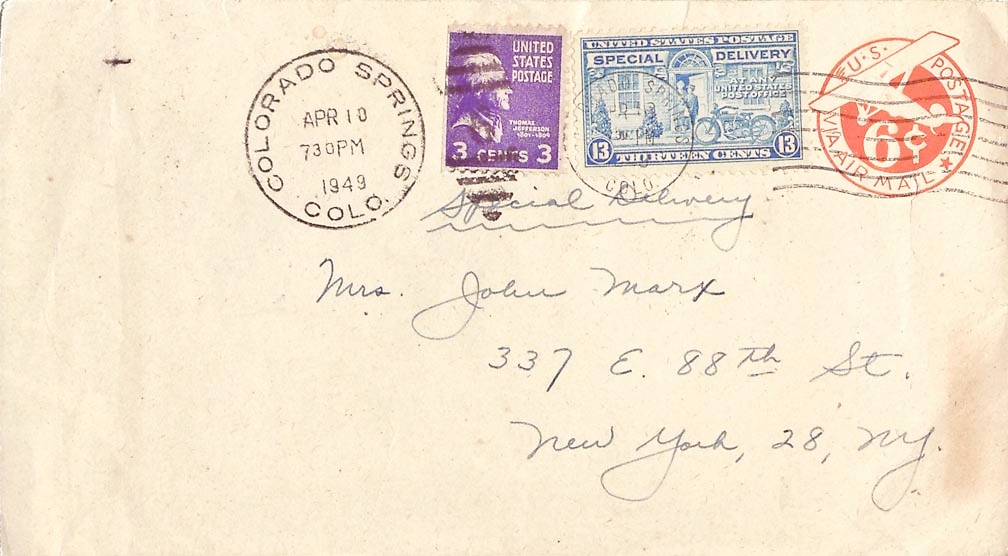 COLORADO SPRINGS
APR 10
730PM
1949
COLO.
UNITED
STATES
POSTAGE
THOMAS
JEFFERSON
1801-1809
3 CENTS 3
UNITED STATES POSTAGE
SPECIAL DELIVERY
AT ANY
UNITED STATES
POST OFFICE
13 THIRTEEN CENTS 13
COLO.
U.S. POSTAGE
6¢
VIA AIR MAIL
Special Delivery
Mrs. John Marx
337 E. 88th St.
New York, 28, NY.